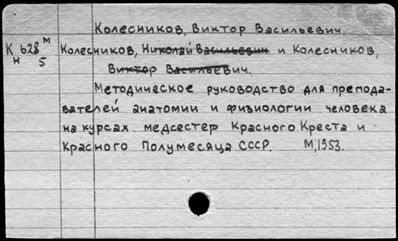 Колесников, Виктор Васильевич.
К 628 м Колесников, Николай Васильевич и Колесников,
н 5 Виктор Васильевич.
Методическое руководство для препода-
вателей анатомии и физиологии человека
на курсах медсестер Красного Креста и
Красного Полумесяца СССР. М, 1953.